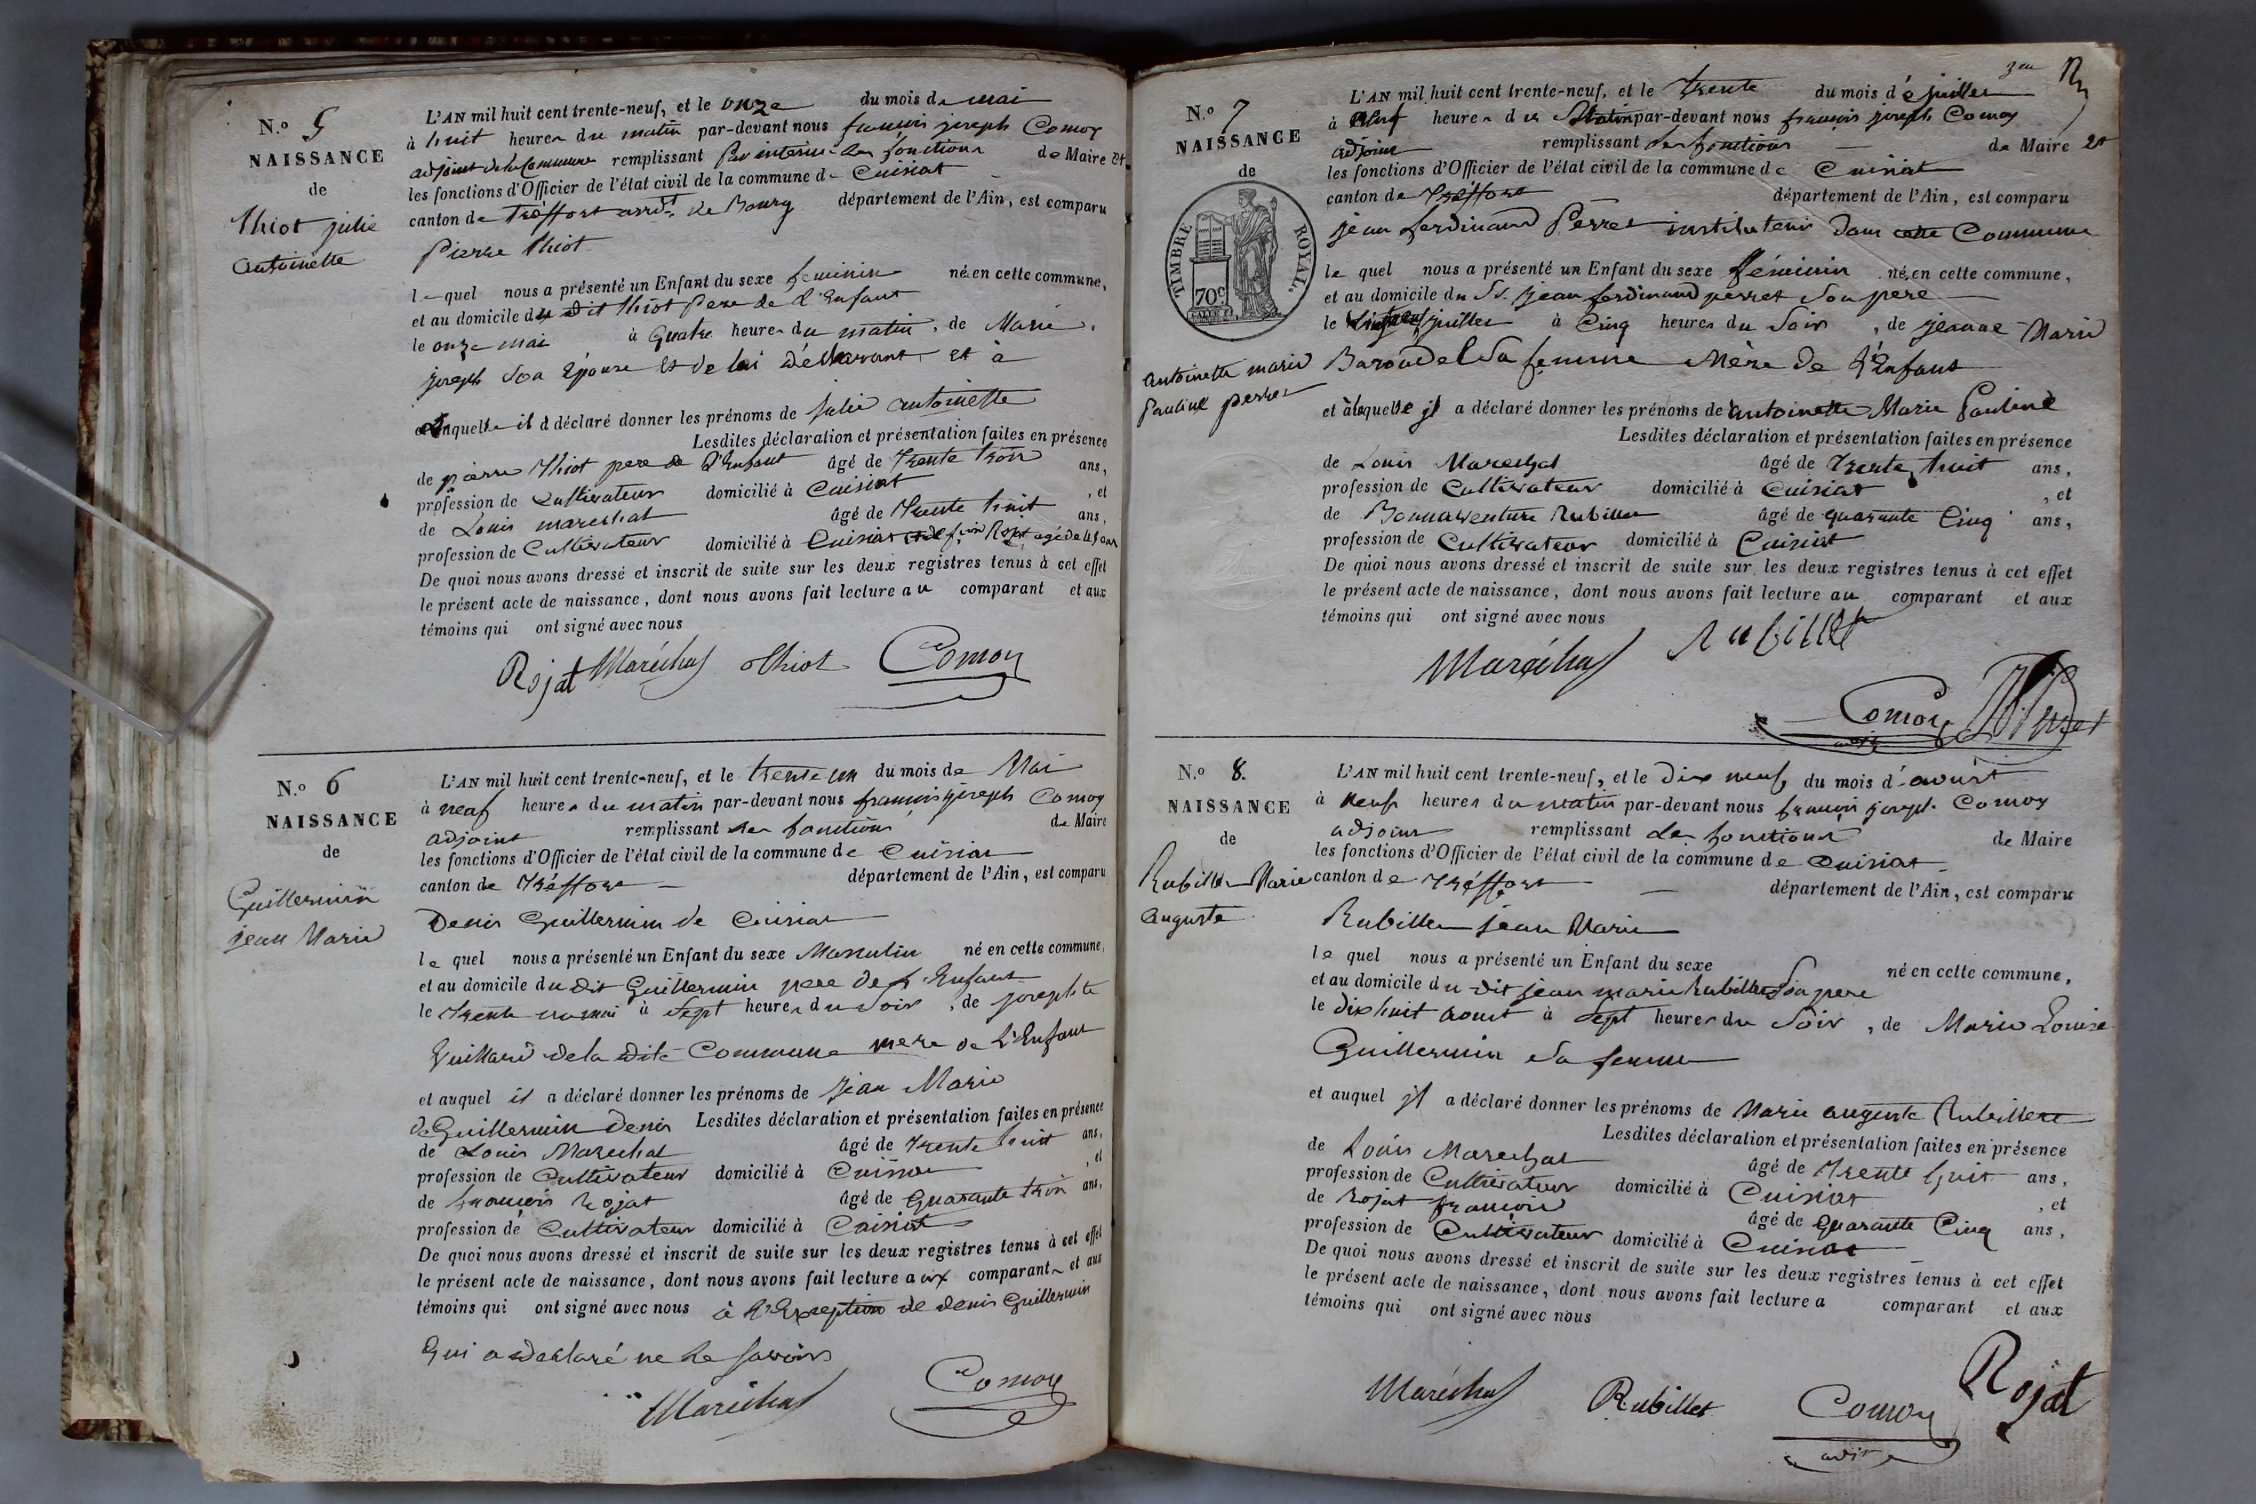 N.o 5
NAISSANCE
de
thiot julie
antoinette
L'AN mil huit cent trente-neuf, et le onze du mois de mai
à huit heures du matin par-devant nous françois joseph Comoy
adjoint de la Commune remplissant par interim les fonctions de Maire et
les fonctions d'Officier de l'état civil de la commune de Cuisiat
canton de Tréffort arrdt de Bourg département de l'Ain, est comparu
Pierre thiot
lequel nous a présenté un Enfant du sexe feminin né en cette commune,
et au domicile du dit thiot Pere de l'Enfant
le onze mai à quatre heures du matin, de Marie
joseph son Epouse et de lui déclarant et à
laquelle il a déclaré donner les prénoms de julie antoinette
Lesdites déclaration et présentation faites en présence
de pierre thiot pere de l'Enfant âgé de trente trois ans,
profession de Cultivateur domicilié à Cuisiat, et
de Louis mareschal âgé de trente huit ans,
profession de Cultivateur domicilié à Cuisiat et de fçois Rojat agé de 45 ans
De quoi nous avons dressé et inscrit de suite sur les deux registres tenus à cet effet
le présent acte de naissance, dont nous avons fait lecture au comparant et aux
témoins qui ont signé avec nous
Rojat Maréchal thiot Comoy
N.o 6
NAISSANCE
de
Guillermin
jean Marie
L'AN mil huit cent trente-neuf, et le trente un du mois de Mai
à neuf heures du matin par-devant nous françois joseph Comoy
adjoint remplissant les fonctions de Maire
les fonctions d'Officier de l'état civil de la commune de Cuisiat
canton de Tréffort département de l'Ain, est comparu
Denis Guillermin de Cuisiat
lequel nous a présenté un Enfant du sexe Masculin né en cette commune,
et au domicile du dit Guillermin pere de l'Enfant
le trente un mai à sept heures du soir, de josephte
Guillard de la dite Commune mere de L'Enfant
et auquel il a déclaré donner les prénoms de jean Marie
de Guillermin Denis Lesdites déclaration et présentation faites en présence
de Louis Marechal âgé de trente huit ans,
profession de Cultivateur domicilié à Cuisiat, et
de françois Rojat âgé de Quarante trois ans,
profession de Cultivateur domicilié à Cuisiat
De quoi nous avons dressé et inscrit de suite sur les deux registres tenus à cet effet
le présent acte de naissance, dont nous avons fait lecture aux comparant et aux
témoins qui ont signé avec nous à l'Exception de denis Guillermin
Qui a declaré ne le savoir
Maréchal Comoy
N.o 7
NAISSANCE
de
TIMBRE ROYAL.
70c
antoinette marie
Pauline perret
L'AN mil huit cent trente-neuf, et le trente du mois de juillet
à neuf heures du Matin par-devant nous françois joseph Comoy
adjoint remplissant les fonctions de Maire et
les fonctions d'Officier de l'état civil de la commune de Cuisiat
canton de Tréffort département de l'Ain, est comparu
jean ferdinand Perret instituteur dans cette Commune
lequel nous a présenté un Enfant du sexe féminin né en cette commune,
et au domicile du Sr. jean ferdinand perret son pere
le juillet à Cinq heures du Soir, de jeanne Marie
Baroudel sa femme Mère de L'Enfant
et à laquelle jl a déclaré donner les prénoms de antoinette Marie Pauline
Lesdites déclaration et présentation faites en présence
de Louis Mareschal âgé de trente huit ans,
profession de Cultivateur domicilié à Cuisiat, et
de Bonnaventure Rubillet âgé de quarante Cinq ans,
profession de Cultivateur domicilié à Cuisiat
De quoi nous avons dressé et inscrit de suite sur les deux registres tenus à cet effet
le présent acte de naissance, dont nous avons fait lecture au comparant et aux
témoins qui ont signé avec nous
Maréchal Rubillet
Comoy Perret
N.o 8.
NAISSANCE
de
Rubillet Marie
Auguste
L'AN mil huit cent trente-neuf, et le dix neuf du mois d'avoust
à neuf heures du matin par-devant nous françois joseph Comoy
adjoint remplissant les fonctions de Maire
les fonctions d'Officier de l'état civil de la commune de Cuisiat
canton de Tréffort département de l'Ain, est comparu
Rubillet jean Marie
lequel nous a présenté un Enfant du sexe né en cette commune,
et au domicile du dit jean marie Rubillet son pere
le dix huit aoust à sept heures du Soir, de Marie Louise
Guillermin sa femme
et auquel jl a déclaré donner les prénoms de Marie auguste Rubillet
Lesdites déclaration et présentation faites en présence
de Louis Mareschal âgé de trente huit ans,
profession de Cultivateur domicilié à Cuisiat, et
de Rojat françois âgé de quarante Cinq ans,
profession de Cultivateur domicilié à Cuisiat
De quoi nous avons dressé et inscrit de suite sur les deux registres tenus à cet effet
le présent acte de naissance, dont nous avons fait lecture a comparant et aux
témoins qui ont signé avec nous
Maréchal Rubillet Comoy Rojat